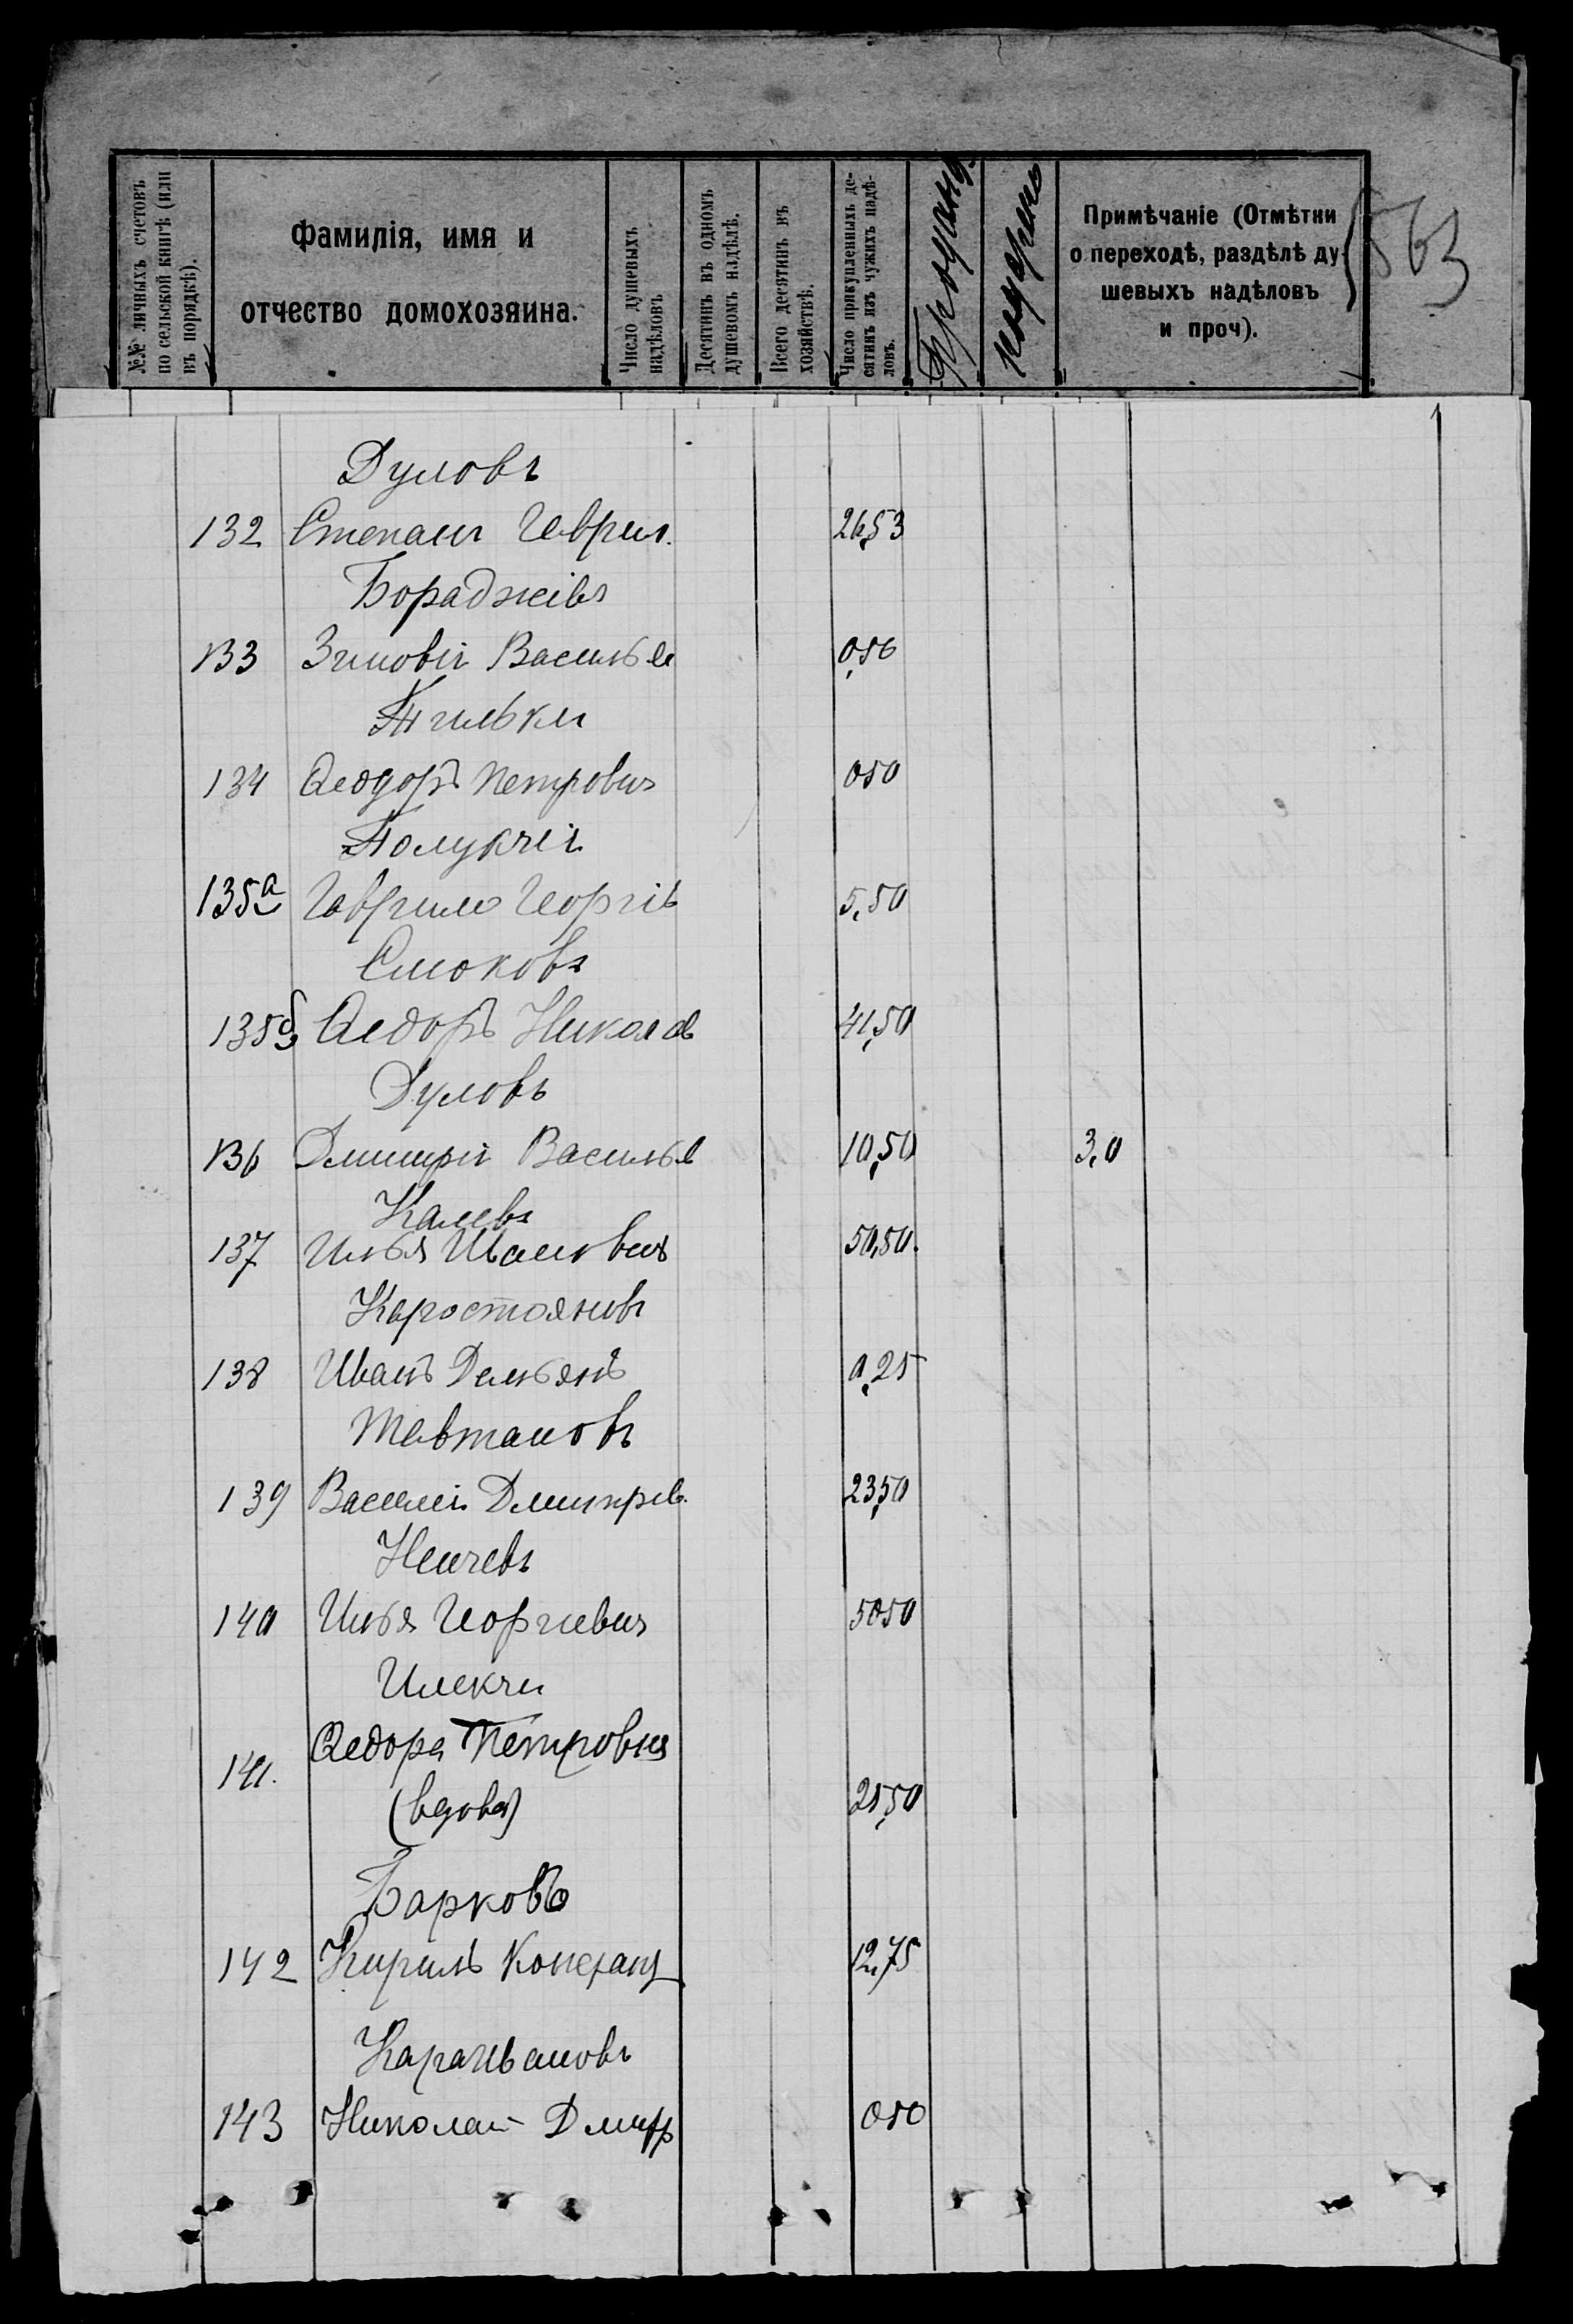 №№ личныхъ счетовъ по сельской книгѣ (или въ порядкѣ).
Фамилія, имя и
отчество домохозяина.
Число душевыхъ надѣловъ
Десятинъ въ одномъ душевомъ надѣлѣ.
Всего десятинъ въ хозяйствѣ.
Число прикупленныхъ десятинъ изъ чужихъ надѣловъ.
Примѣчаніе (Отмѣтки
о переходѣ, раздѣлѣ ду-
шевыхъ надѣловъ
и проч).
563
Дуловъ
132 Степанъ Гаврил. 26,53
Бораджіевъ
133 Зиновій Василье 0,56
134 Ѳеодоръ Петровичъ 050
135а Гаврило Георгів 5,50
135б Ѳедоръ Никола 41,50
Дуловъ
136 Дмитрій Василье 10,50 3,0
Калевъ
137 Илья Ивановичъ 50,50.
Каростояновъ
138 Иванъ Демьянъ 0,25
Тавтановъ
139 Василій Дмитрів. 23,50
Ненчевъ
140 Илья Георгіевич 5050
Илекчи
Ѳедора Петровна
141.
(вдова) 25,50
Барковъ
142 Кирилъ Констант 12,75
Караивановъ
143 Николай Дмитр 050